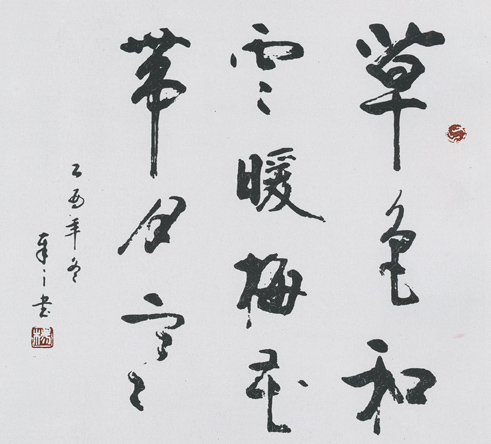 草色和
雲暖梅花
帶月寒
乙酉年冬
書